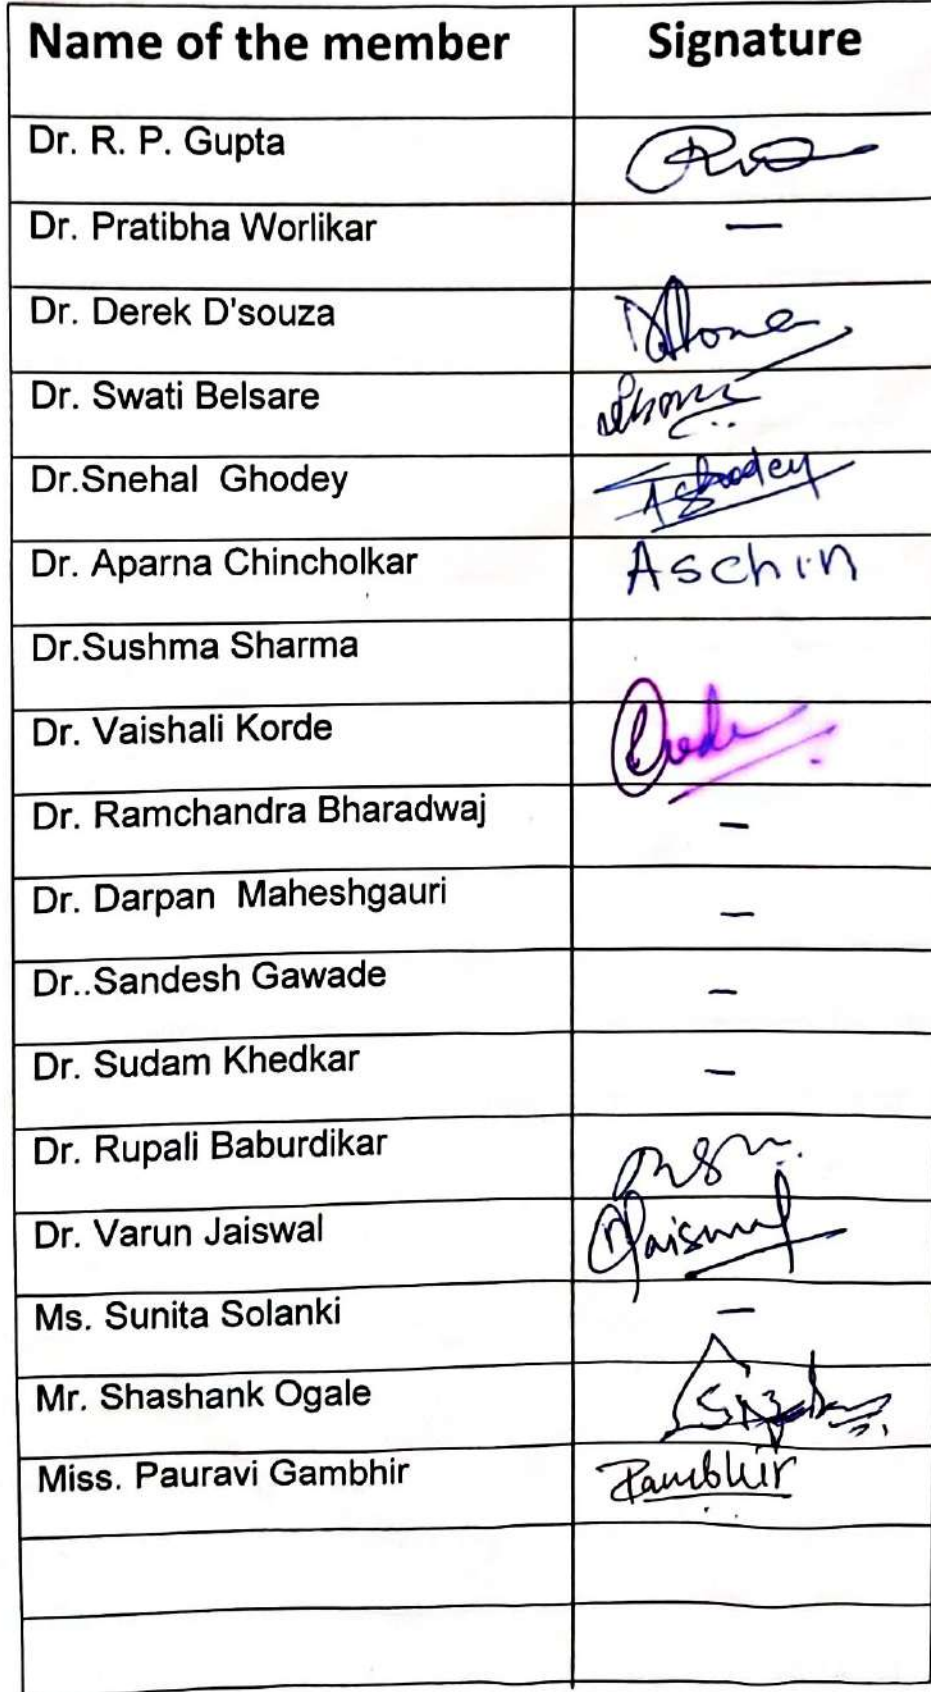 Name of the member Signature
Dr. R. P. Gupta
Dr. Pratibha Worlikar —
Dr. Derek D'souza
Dr. Swati Belsare
Dr.Snehal  Ghodey
Dr. Aparna Chincholkar Aschin
Dr.Sushma Sharma
Dr. Vaishali Korde
Dr. Ramchandra Bharadwaj –
Dr. Darpan  Maheshgauri –
Dr..Sandesh Gawade –
Dr. Sudam Khedkar –
Dr. Rupali Baburdikar
Dr. Varun Jaiswal Jaiswal
Ms. Sunita Solanki –
Mr. Shashank Ogale
Miss. Pauravi Gambhir Pambhir